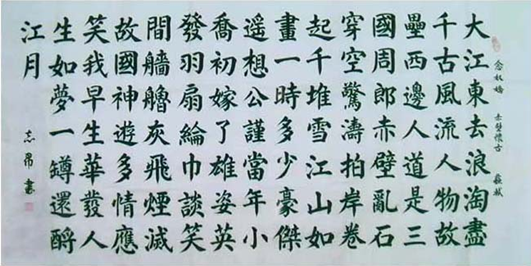 念奴嬌 赤壁懷古 蘇軾
大江東去浪淘盡
千古風流人物故
壘西邊人道是三
國周郎赤壁亂石
穿空驚濤拍岸卷
起千堆雪江山如
畫一時多少豪傑
遥想公謹當年小
喬初嫁了雄姿英
發羽扇綸巾談笑
間艢艣灰飛煙滅
故國神遊多情應
笑我早生華發人
生如夢一罇還酹
江月
志帛書